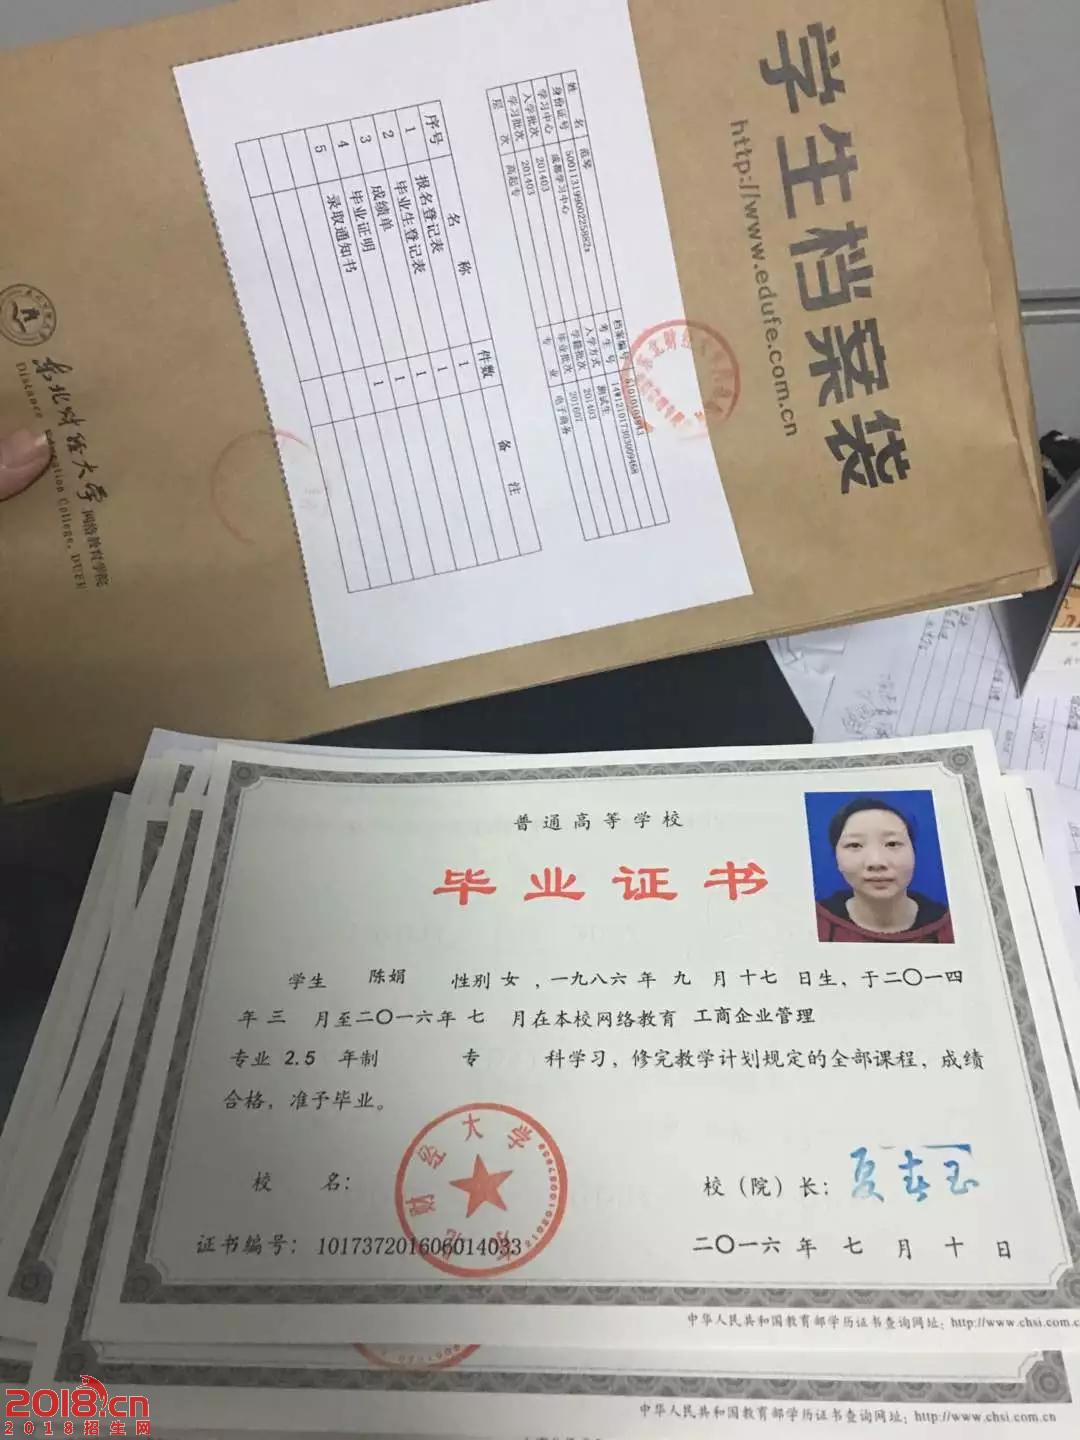 学生档案袋
http://www.edufe.com.cn
姓名 范琴 档案编号
身份证号 考生号 14W121017303009468
学习中心 成都学习中心 入学方式 测试生
入学批次 201403 学籍批次 201403
学习批次 201403 毕业批次 201607
层次 高起专 专业 电子商务
序号 名称 件数 备注
1 报名登记表 1
2 毕业生登记表 1
3 成绩单 1
4 毕业证明 1
5 录取通知书
东北财经大学 网络教育学院
Distance Education College, DUFE
普通高等学校
毕业证书
学生 陈娟 性别 女 ,一九八六 年 九 月 十七 日生, 于二〇一四
年 三 月至二〇一六年 七 月在本校网络教育 工商企业管理
专业 2.5 年制 专 科学习, 修完教学计划规定的全部课程, 成绩
合格, 准予毕业。
东北财经大学
校 名: 校(院)长: 夏春玉
证书编号: 101737201606014033 二〇一六 年 七 月 十 日
中华人民共和国教育部学历证书查询网址: http://www.chsi.com.c
中华人民共和国教育部学历证书查询网址: http://www.chsi.com.cn
2018.cn
2018招生网